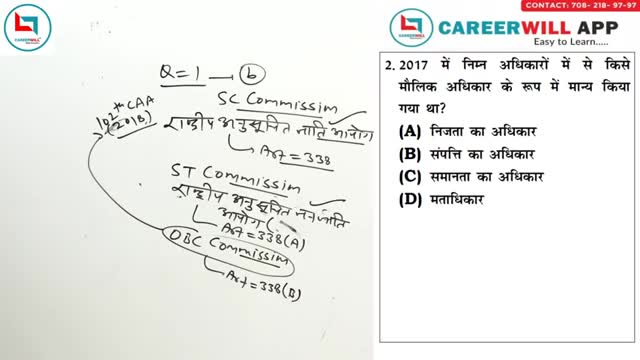 CAREERWILL
CONTACT: 708- 218- 97-97
CAREERWILL APP
Easy to Learn.....
Q=1 → (b)
SC Commissim
102th CAA
(2018)
राष्ट्रीय अनुसूचित जाति आयोग
Art = 338
ST Commissim
राष्ट्रीय अनुसूचित जनजाति
आयोग (
Art = 338(A)
OBC Commissim
Art = 338(B)
2. 2017 में निम्न अधिकारों में से किसे
मौलिक अधिकार के रूप में मान्य किया
गया था?
(A) निजता का अधिकार
(B) संपत्ति का अधिकार
(C) समानता का अधिकार
(D) मताधिकार